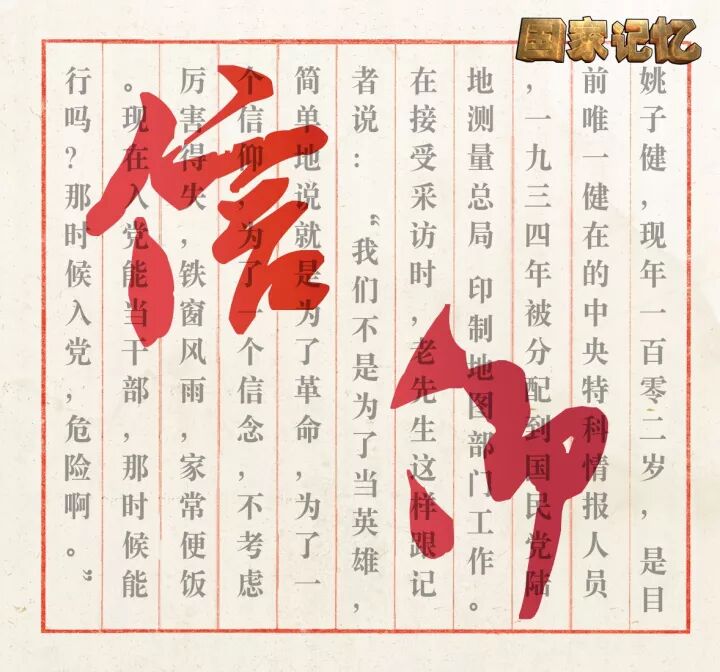 国家记忆
信
仰
姚子健，现年一百零二岁，是目
前唯一健在的中央特科情报人员
，一九三四年被分配到国民党陆
地测量总局 印制地图部门工作。
在接受采访时，老先生这样跟记
者说：“我们不是为了当英雄，
简单地说就是为了革命，为了一
个信仰，为了一个信念，不考虑
厉害得失，铁窗风雨，家常便饭
。现在入党能当干部，那时候能
行吗？那时候入党，危险啊。”